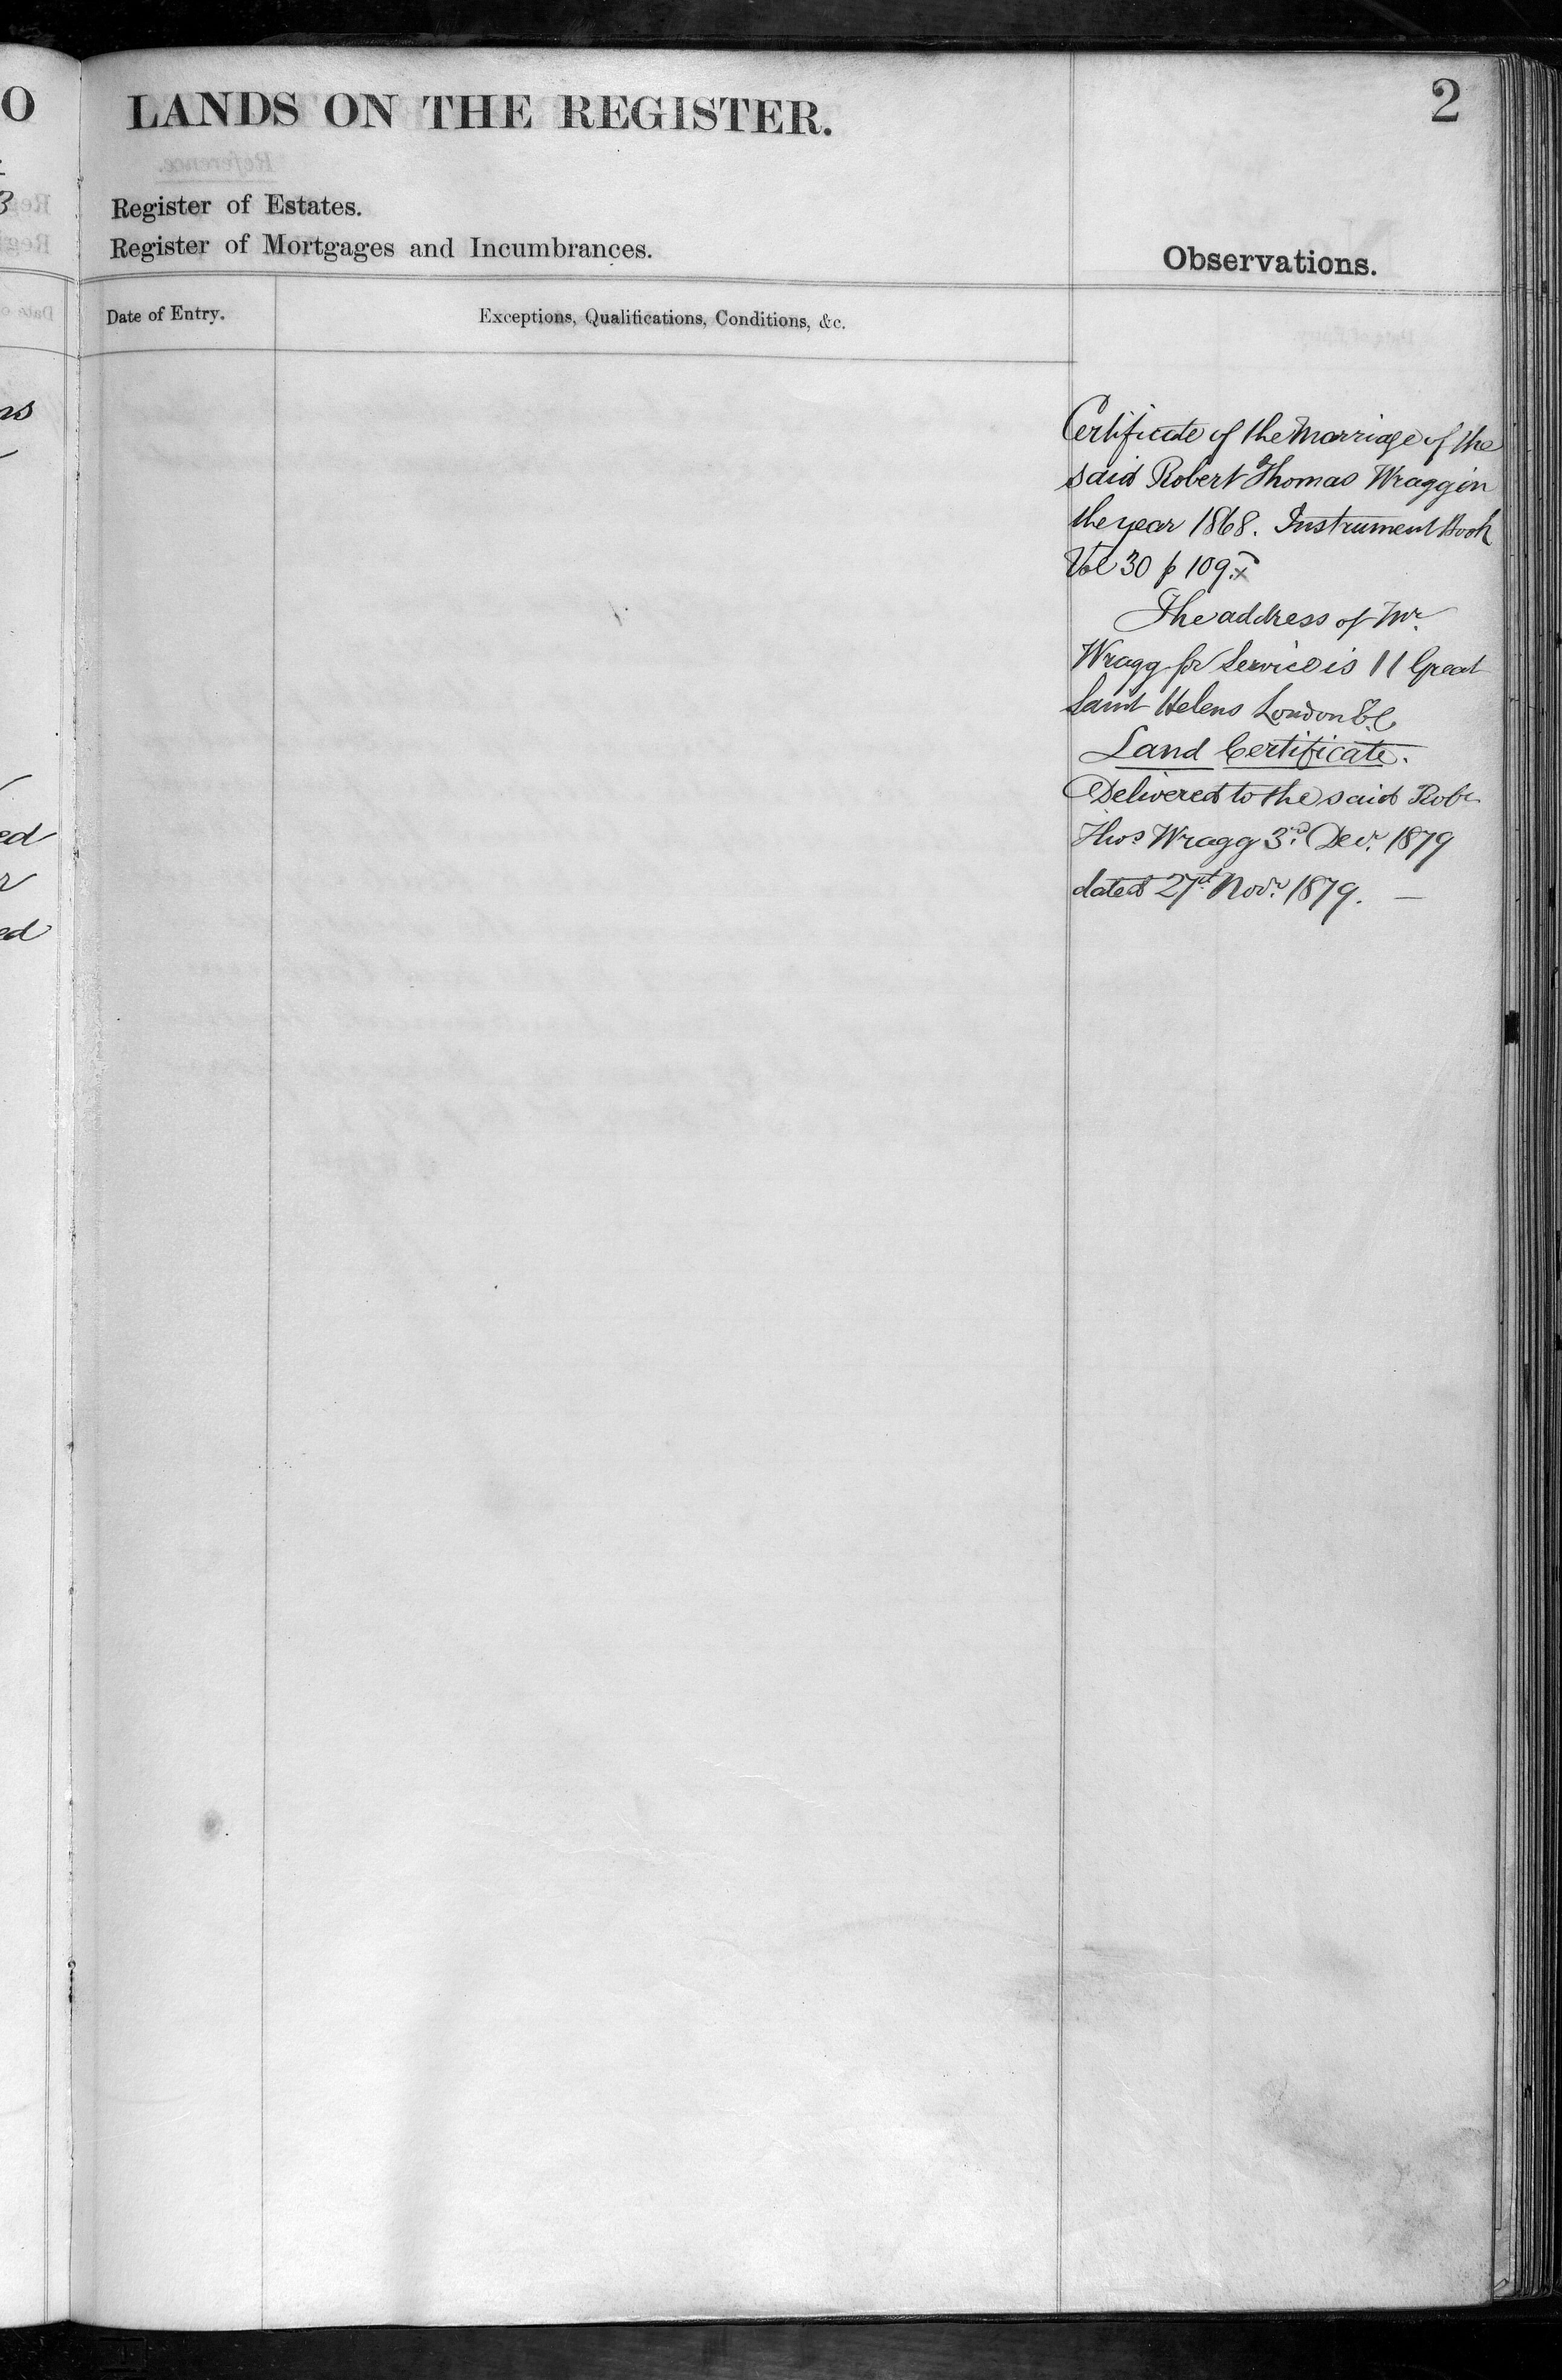 LANDS ON THE REGISTER.
2
Register of Estates.
Register of Mortgages and Incumbrances.
Observations.
Date of Entry.
Exceptions, Qualifications, Conditions, &c.
Certificate of the Marriage of the
said Robert Thomas Wragg in
the year 1868. Instrument Book
Vol 30 p 109.x
The address of Mr.
Wragg for Service is 11 Great
Saint Helens London E.C.
Land Certificate.
Delivered to the said Robt.
Thos. Wragg 3rd. Decr. 1879
dated 27th Novr. 1879. —